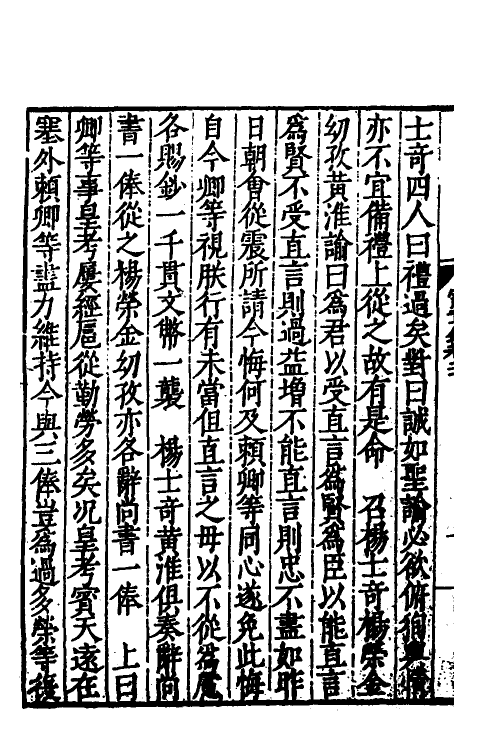 士奇四人曰禮過矣對曰誠如聖諭必欲俯徇輿情
亦不宜備禮上從之故有是命　召楊士奇楊榮金
幼孜黃淮諭曰爲君以受直言爲賢爲臣以能直言
爲賢不受直言則過益增不能直言則忠不盡如昨
日朝會從震所請今悔何及賴卿等同心遂免此悔
自今卿等視朕行有未當但直言之毋以不從爲慮
各賜鈔一千貫文幣一襲　楊士奇黃淮俱奏辭尚
書一俸從之楊榮金幼孜亦各辭尚書一俸　上曰
卿等事皇考屢經扈從勤勞多矣况皇考賓天遠在
塞外賴卿等盡力維持今與三俸豈爲過多榮等復